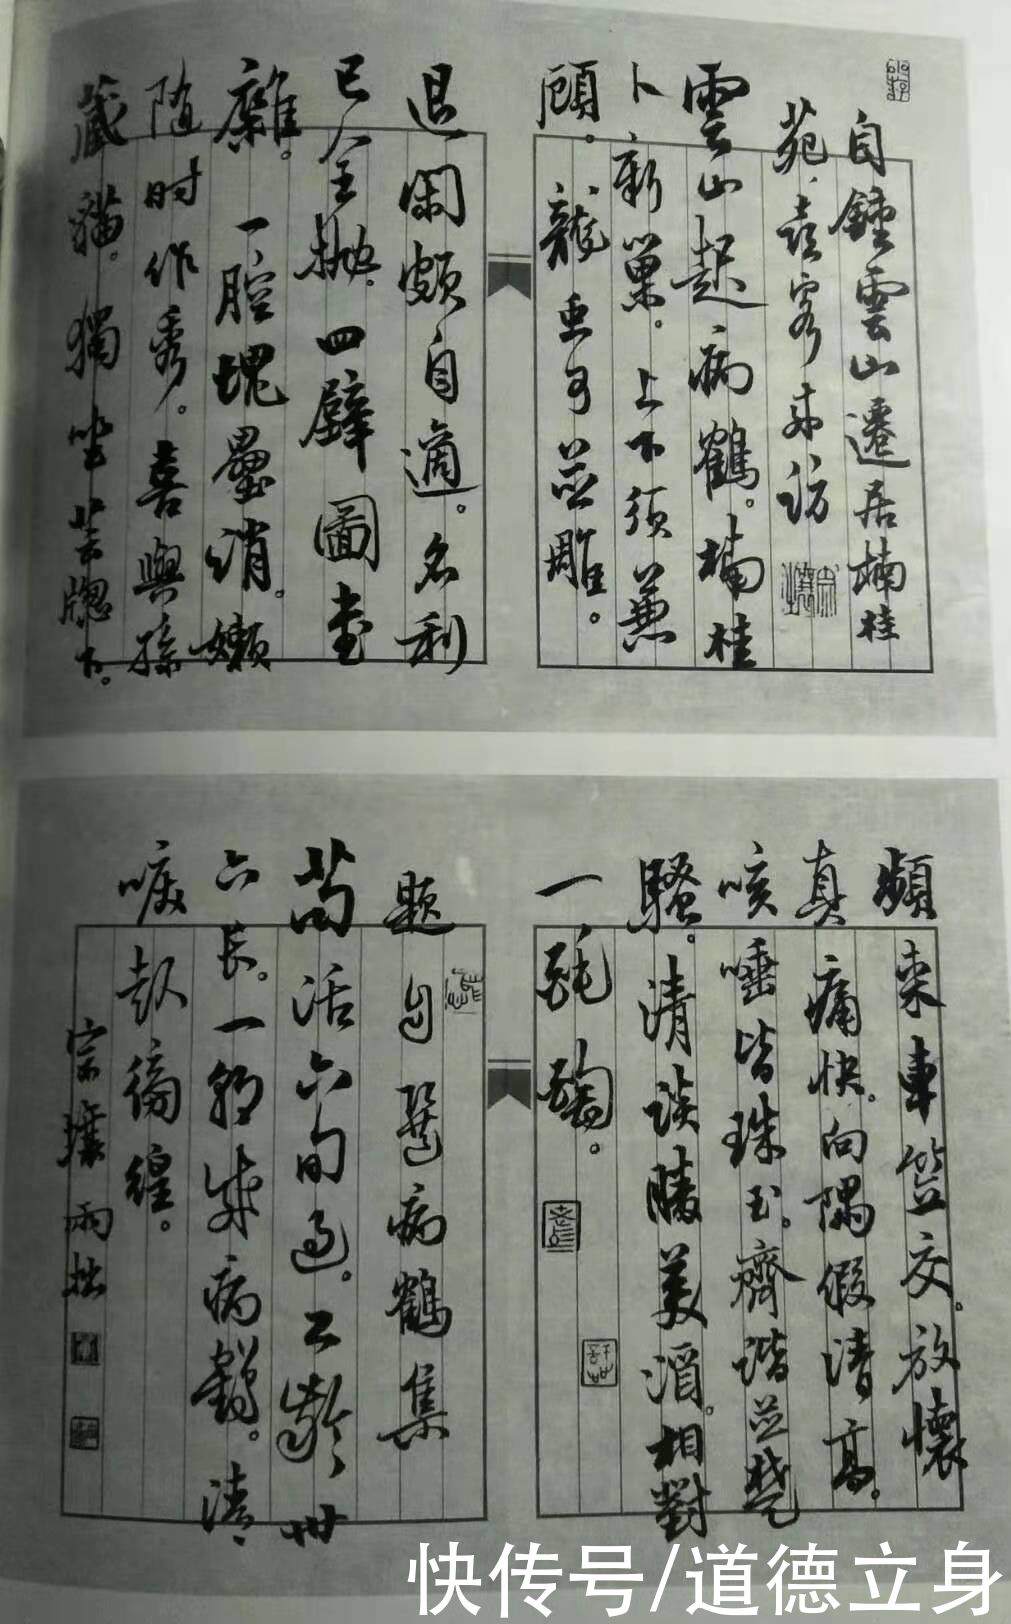 自鍾雲山遷居楠桂
苑喜客来訪
雲山起病鶴。楠桂
卜新巢。上下須兼
顧。龍蟲可並雕。
退閑頗自適。名利
已全抛。四壁圖書
雜。一腔塊壘消。嬾
随时作秀。喜與孫
藏貓。獨坐芸牕下。
頻来車笠交。放懷
真痛快。向隅假清高。
咳唾皆珠玉。齊諧並楚
騷。清談勝美酒。相對
一酕醄。
題自  病鶴集
苟活六旬過。工齡卅
六長。一朝成病鶴。清
唳起徬徨。
宗瓖雨拙
快传号/道德立身